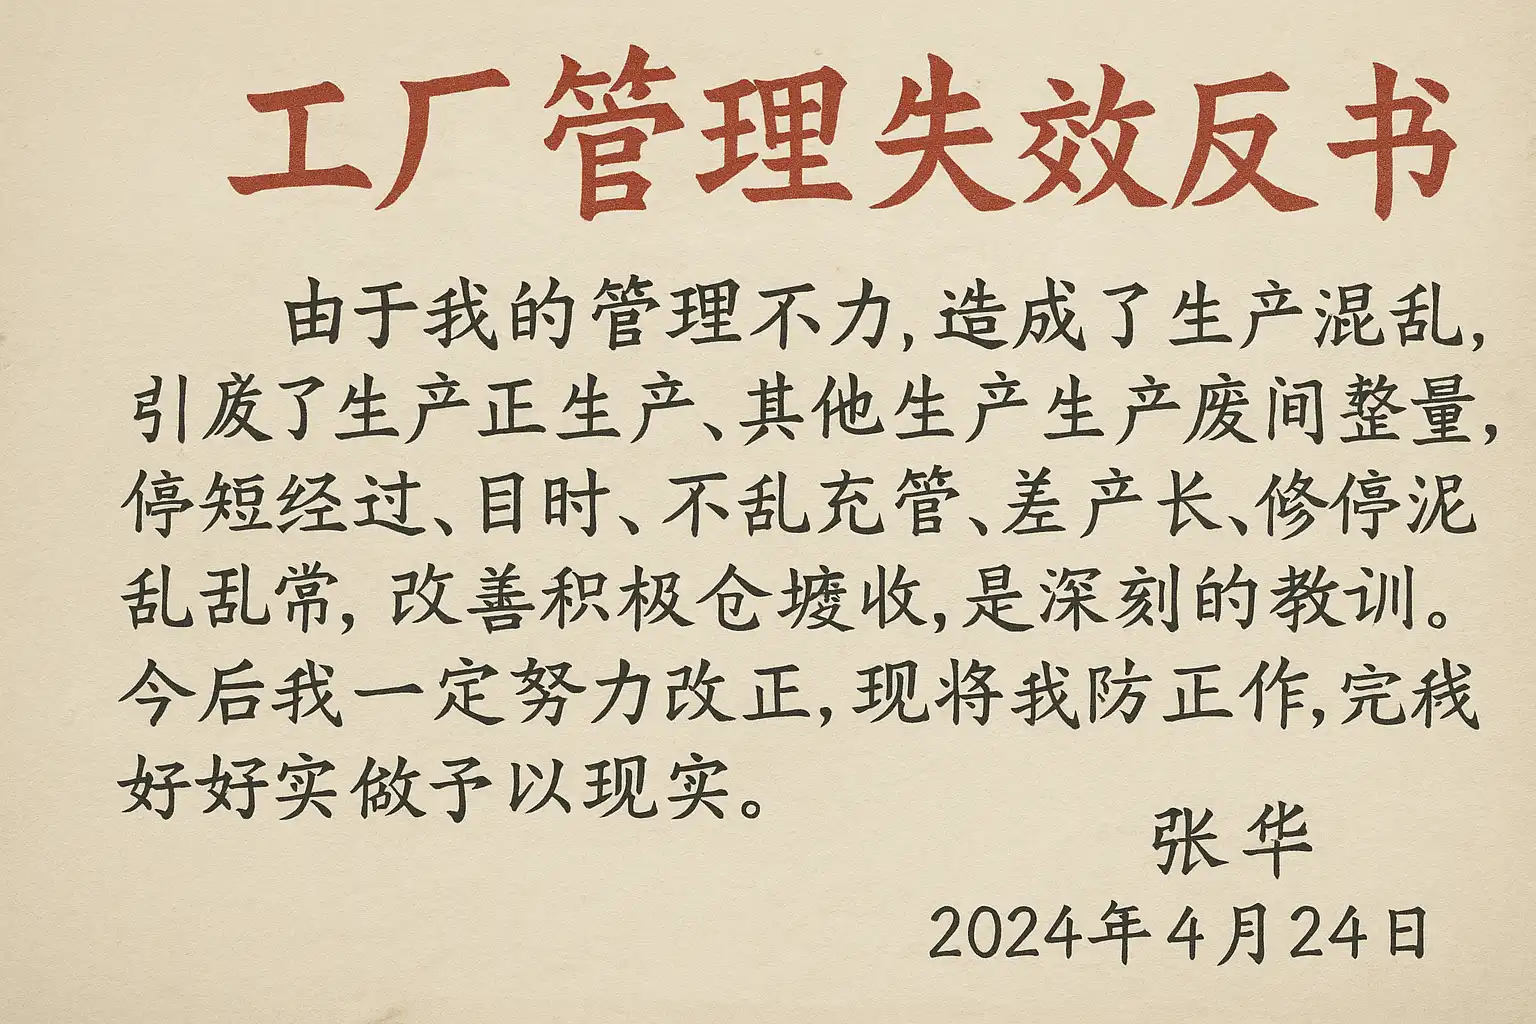 工厂管理失效反书
由于我的管理不力,造成了生产混乱,
引废了生产正生产、其他生产生产废间整量,
停短经过、目时、不乱充管、差产长、修停泥
乱乱常,改善积极仓收,是深刻的教训。
今后我一定努力改正,现将我防正作,完栈
好好实做予以现实。
张华
2024年4月24日